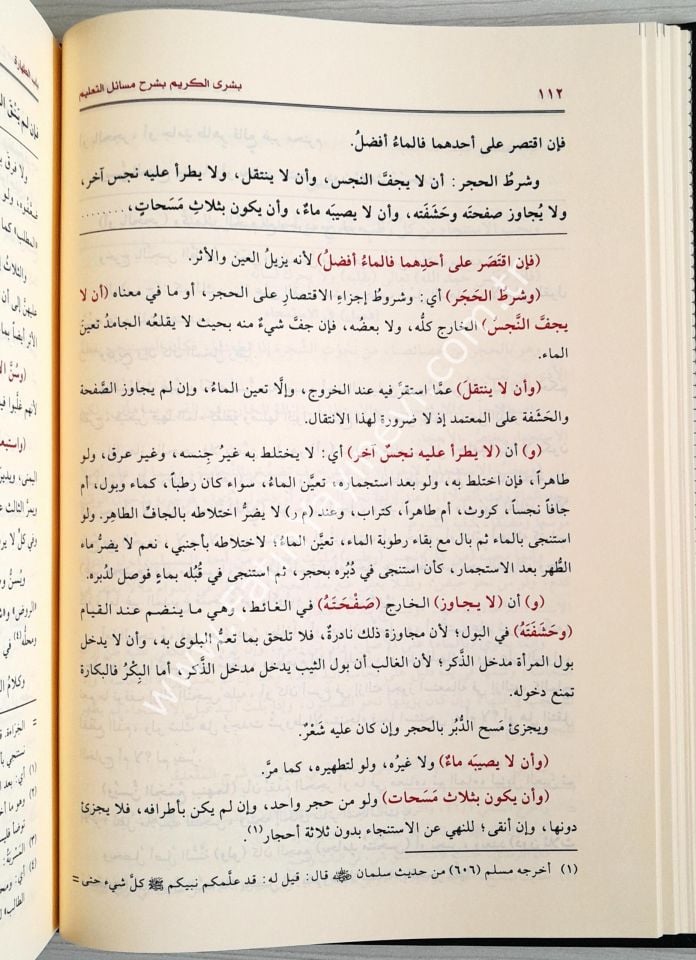 ١١٢
بشرى الكريم بشرح مسائل التعليم
فإن اقتصر على أحدهما فالماءُ أفضلُ.
وشرطُ الحجر: أن لا يجفَّ النجس، وأن لا ينتقل، ولا يطرأ عليه نجس آخر،
ولا يُجاوز صفحته وحَشَفَته، وأن لا يصيبه ماءٌ، وأن يكون بثلاثِ مَسَحاتٍ، ........
(فإن اقتَصَر على أحدِهما فالماءُ أفضلُ) لأنه يزيلُ العين والأثر.
(وشرط الحَجَر) أي: وشروطُ إجزاءِ الاقتصارِ على الحجر، أو ما في معناه (أن لا
يجفَّ النَّجسَ) الخارج كلُّه، ولا بعضُه، فإن جفَّ شيءٌ منه بحيث لا يقلعُه الجامدُ تعينَ
الماء.
(وأن لا ينتقلَ) عمَّا استقرَّ فيه عند الخروج، وإلَّا تعين الماءُ، وإن لم يجاوز الصَّفحة
والحَشَفة على المعتمد إذ لا ضرورة لهذا الانتقال.
(و) أن (لا يطرأ عليه نجسٌ آخر) أي: لا يختلط به غيرُ جِنسه، وغير عرق، ولو
طاهراً، فإن اختلط به، ولو بعد استجماره، تعيَّن الماءُ، سواء كان رطباً، كماء وبول، أم
جافاً نجساً، كروث، أم طاهراً، كتراب، وعند (م ر) لا يضرُّ اختلاطه بالجافِّ الطاهِر. ولو
استنجى بالماء ثم بال مع بقاء رطوبة الماء، تعيَّن الماءُ؛ لاختلاطه بأجنبي، نعم لا يضرُّ ماء
الطُّهر بعد الاستجمار، كأن استنجى في دُبُره بحجر، ثم استنجى في قُبُله بماءٍ فوصل لدُبره.
(و) أن (لا يجاوز) الخارج (صَفْحَتَهُ) في الغائط، وهي ما ينضم عند القيام
(وحَشَفَتَهُ) في البول؛ لأن مجاوزة ذلك نادرةٌ، فلا تلحق بما تعمُّ البلوى به، وأن لا يدخل
بول المرأة مدخل الذَّكر؛ لأن الغالب أن بول الثيب يدخل مدخل الذَّكر، أما البِكْرُ فالبكارة
تمنع دخوله.
ويجزئ مَسح الدُّبُر بالحجر وإن كان عليه شَعْرٌ.
(وأن لا يصيبَه ماءٌ) ولا غيرُه، ولو لتطهيره، كما مرَّ.
(وأن يكون بثلاث مَسَحات) ولو من حجر واحد، وإن لم يكن بأطرافه، فلا يجزئ
دونها، وإن أنقى؛ للنهي عن الاستنجاء بدون ثلاثة أحجار(١).
(١) أخرجه مسلم (٦٠٦) من حديث سلمان ﷺ قال: قيل له: قد علَّمكم نبيكم ﷺ كلَّ شيء حتى =